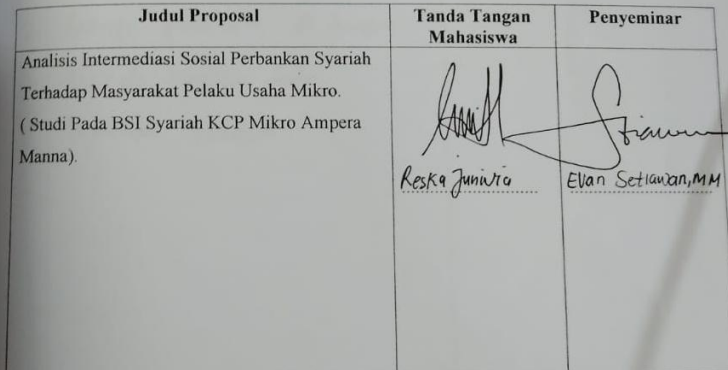 Judul Proposal
Tanda Tangan
Mahasiswa
Penyeminar
Analisis Intermediasi Sosial Perbankan Syariah
Terhadap Masyarakat Pelaku Usaha Mikro.
( Studi Pada BSI Syariah KCP Mikro Ampera
Manna).
Reska Junivia
Evan Setiawan, MM